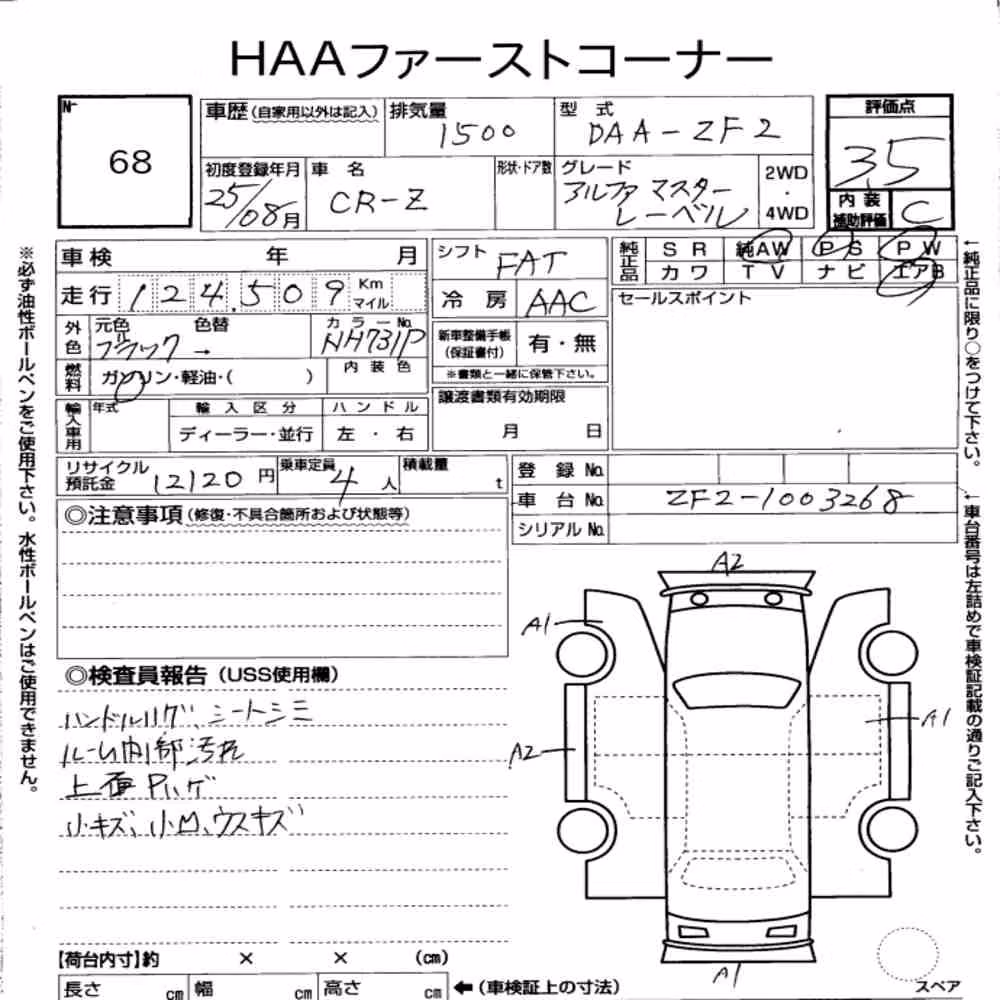 HAAファーストコーナー
№
68
車歴(自家用以外は記入)
排気量
1500
型式
DAA-ZF2
初度登録年月
25/08月
車名
CR-Z
形状・ドア数
グレード
アルファ マスター
レーベル
2WD
・
4WD
評価点
3.5
内装
補助評価
C
車検 年 月
走行 124,509 Km
マイル
外色
元色 色替
ブラック →
カラーNo.
NH731P
燃料
ガソリン・軽油・( )
内装色
輸入車用
年式
輸入区分
ハンドル
ディーラー・並行
左・右
シフト
FAT
冷房
AAC
新車整備手帳
(保証書付)
有・無
※書類と一緒に保管下さい。
譲渡書類有効期限
月 日
純正品
SR 純AW PS PW
カワ TV ナビ エアB
セールスポイント
リサイクル
預託金
12120 円
乗車定員
4 人
積載量
t
登録No.
車台No.
ZF2-1003268
シリアルNo.
◎注意事項(修復・不具合箇所および状態等)
◎検査員報告(USS使用欄)
ハンドルハゲ、シートシミ
ルーム内1部汚れ
上面Pハゲ
小キズ、小凹、ウスキズ
A2
A1
A1
A2
A1
スペア
【荷台内寸】約 × × (cm)
長さ cm 幅 cm 高さ cm
←(車検証上の寸法)
※必ず油性ボールペンをご使用下さい。水性ボールペンはご使用できません。
←純正品に限り○をつけて下さい。
←車台番号は左詰めで車検証記載の通りご記入下さい。